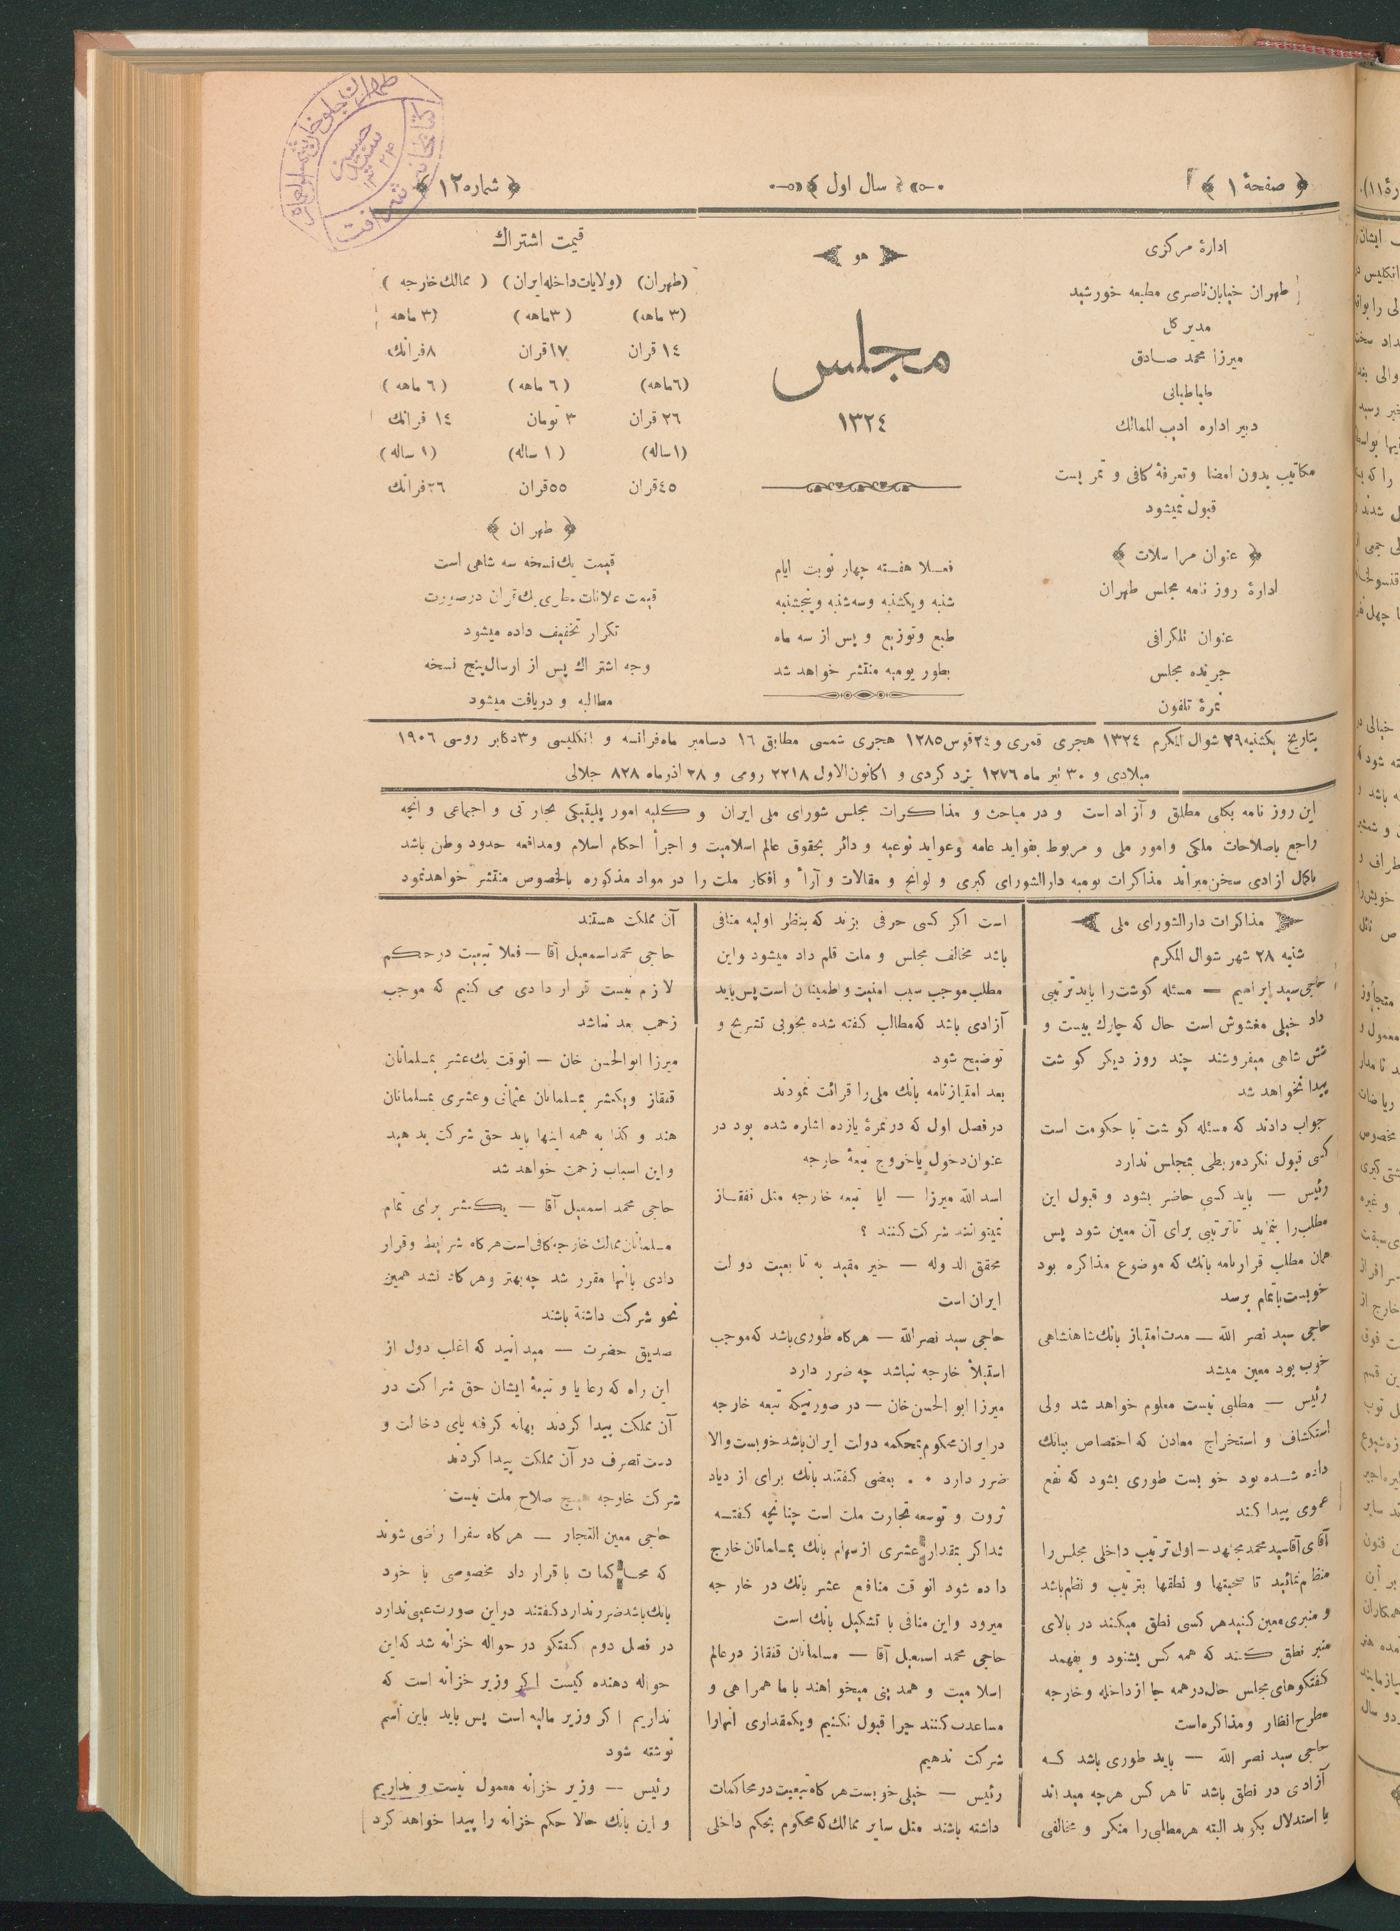 صفحهٔ ۱
سال اول
شماره ۱۲
ادارهٔ مرکزی
طهران خیابان ناصری مطبعه خورشید
مدیر کل
میرزا محمد صادق
طباطبائی
دبیر اداره ادیب الممالک
مکاتیب بدون امضا و تعرفهٔ کافی و تمر پست
قبول نمیشود
عنوان مراسلات
ادارهٔ روز نامه مجلس طهران
عنوان تلگرافی
جریده مجلس
نمرهٔ تلفون
هو
مجلس
۱۳۲٤
فعلا هفته چهار نوبت ایام
شنبه ویکشنبه وسه‌شنبه وپنجشنبه
طبع وتوزیع و پس از سه ماه
بطور یومیه منتشر خواهد شد
قیمت اشتراك
(طهران) (ولایات داخله ایران) (ممالك خارجه)
(۳ ماهه) (۳ماهه) (۳ ماهه)
۱٤ قران ۱۷قران ۸فرانك
(٦ماهه) (٦ ماهه) (٦ ماهه)
۲٦ قران ۳ تومان ۱٤ فرانك
(۱ساله) (۱ ساله) (۱ ساله)
٤٥قران ٥٥قران ۲٦فرانك
طهران
قیمت یك نسخه سه شاهی است
قیمت علانات سطری یك قران درصورت
تکرار تخفیف داده میشود
وجه اشتراك پس از ارسال پنج نسخه
مطالبه و دریافت میشود
بتاریخ یکشنبه۲۹ شوال المکرم ۱۳۲٤ هجری قمری و۲٤قوس۱۲۸٥ هجری شمسی مطابق ۱٦ دسامبر ماه فرانسه و انگلیسی و۳دکابر روسی ۱۹۰٦
میلادی و ۳۰ تیر ماه ۱۲۷٦ یزد کردی و ۱کانون الاول ۲۲۱۸ رومی و ۲۸ اذرماه ۸۲۸ جلالی
این روز نامه بکلی مطلق و آزاد است و در مباحث و مذاکرات مجلس شورای ملی ایران و کلیه امور پلیتیکی تجارتی و اجتماعی و آنچه
راجع باصلاحات ملکی وامور ملی و مربوط بفواید عامه وعواید نوعیه و دائر بحقوق عالم اسلامیت و اجرأ احکام اسلام ومدافعه حدود وطن باشد
باکمال ازادی سخن میراند مذاکرات یومیه دارالشورای کبری و لوایح و مقالات و آرأ و افکار ملت را در مواد مذکوره بالخصوص منتشر خواهدنمود
مذاکرات دارالشورای ملی
شنبه ۲۸ شهر شوال المکرم
حاجی سید ابراهیم — مسئله کوشت را باید ترتیبی
داد خیلی مغشوش است حال که چارك بیست و
شش شاهی میفروشند چند روز دیکر کوشت
پیدا نخواهد شد
جواب دادند که مسئله کوشت با حکومت است
کسی قبول نکرده ربطی بمجلس ندارد
رئیس — باید کسی حاضر بشود و قبول این
مطلب را بنماید تاترتیبی برای آن معین شود پس
همان مطلب قرارنامه بانك که موضوع مذاکره بود
خوبست باتمام برسد
حاجی سید نصر الله — مدت امتیاز بانك شاهنشاهی
خوب بود معین میشد
رئیس — مطلبی نیست معلوم خواهد شد ولی
استکشاف و استخراج معادن که اختصاص ببانك
داده شده بود خوبست طوری بشود که نفع
عمومی پیدا کند
آقای آقاسید محمد مجتهد — اول ترتیب داخلی مجلس را
منظم نمائید تا صحبتها و نطقها بترتیب و نظم باشد
و منبری معین کنید هر کسی نطق میکند در بالای
منبر نطق کند که همه کس بشنود و بفهمد
کفتکوهای مجلس حال درهمه جا از داخله وخارجه
مطرح انظار ومذاکره است
حاجی سید نصر الله — باید طوری باشد که
آزادی در نطق باشد تا هر کس هرچه میداند
با استدلال بکوید البته هر مطالبی را منکر و مخالفی
است اکر کسی حرفی بزند که بنظر اولیه منافی
باشد مخالف مجلس و ملت قلم داد میشود واین
مطلب موجب سبب امنیت واطمینان است پس باید
آزادی باشد که مطالب کفته شده بخوبی تشریح و
توضیح شود
بعد امتیازنامه بانك ملی را قرائت نمودند
در فصل اول که در نمرهٔ یازده اشاره شده بود در
عنوان دخول یاخروج تبعهٔ خارجه
اسد الله میرزا — ایا تبعه خارجه مثل قفقاز
نمیتوانند شرکت کنند ؟
محقق الدوله — خیر مقید به تابعیت دولت
ایران است
حاجی سید نصر الله — هرکاه طوری باشد که موجب
استیلأ خارجه نباشد چه ضرر دارد
میرزا ابو الحسن خان — در صورتیکه تبعه خارجه
در ایران محکوم بمحکمه دولت ایران باشد خوبست والا
ضرر دارد • • بعضی کفتند بانك برای ازدیاد
ثروت و توسعه تجارت ملت است چنانچه کفته
مذاکر بمقدار عشری از سهام بانك بمسلمانان خارج
داده شود انوقت منافع عشر بانك در خارجه
میرود واین منافی با تشکیل بانك است
حاجی محمد اسمعیل آقا — مسلمانان قفقاز در عالم
اسلامیت و همدینی میخواهند با ما همراهی و
مساعدت کنند چرا قبول نکنیم ویکمقداری انهارا
شرکت ندهیم
رئیس — خیلی خوبست هرکاه تبعیت در محاکمات
داشته باشند مثل سایر ممالك که محکوم بحکم داخلی
آن مملکت هستند
حاجی محمد اسمعیل آقا — فعلا تبعیت در حکم
لازم نیست قراردادی می کنیم که موجب
زحمت بعد نباشد
میرزا ابوالحسن خان — انوقت یك عشر بمسلمانان
قفقاز ویکعشر بمسلمانان عثمانی وعشری بمسلمانان
هند و کذا به همه اینها باید حق شرکت بدهید
واین اسباب زحمت خواهد شد
حاجی محمد اسمعیل آقا — یکعشر برای تمام
مسلمانان ممالك خارجه کافی است هرکاه شرایط وقرار
دادی باانها مقرر شد چه بهتر وهرکاه نشد همین
نحو شرکت داشته باشند
صدیق حضرت — میدانید که اغلب دول از
این راه که رعایا و تبعهٔ ایشان حق شراکت در
آن مملکت پیدا کردند بهانه کرفته پای دخالت و
دست تصرف در آن مملکت پیدا کردند
شرکت خارجه هیچ صلاح ملت نیست
حاجی معین التجار — هرکاه سفرا راضی شوند
که محاکمات با قرار داد مخصوصی با خود
بانك باشد ضرر ندارد کفتند در این صورت عیبی ندارد
در فصل دوم کفتکو در حواله خزانه شد که این
حواله دهنده کیست اکر وزیر خزانه است که
نداریم اکر وزیر مالیه است پس باید باین اسم
نوشته شود
رئیس — وزیر خزانه معمول نیست و نداریم
و این بانك حالا حکم خزانه را پیدا خواهد کرد